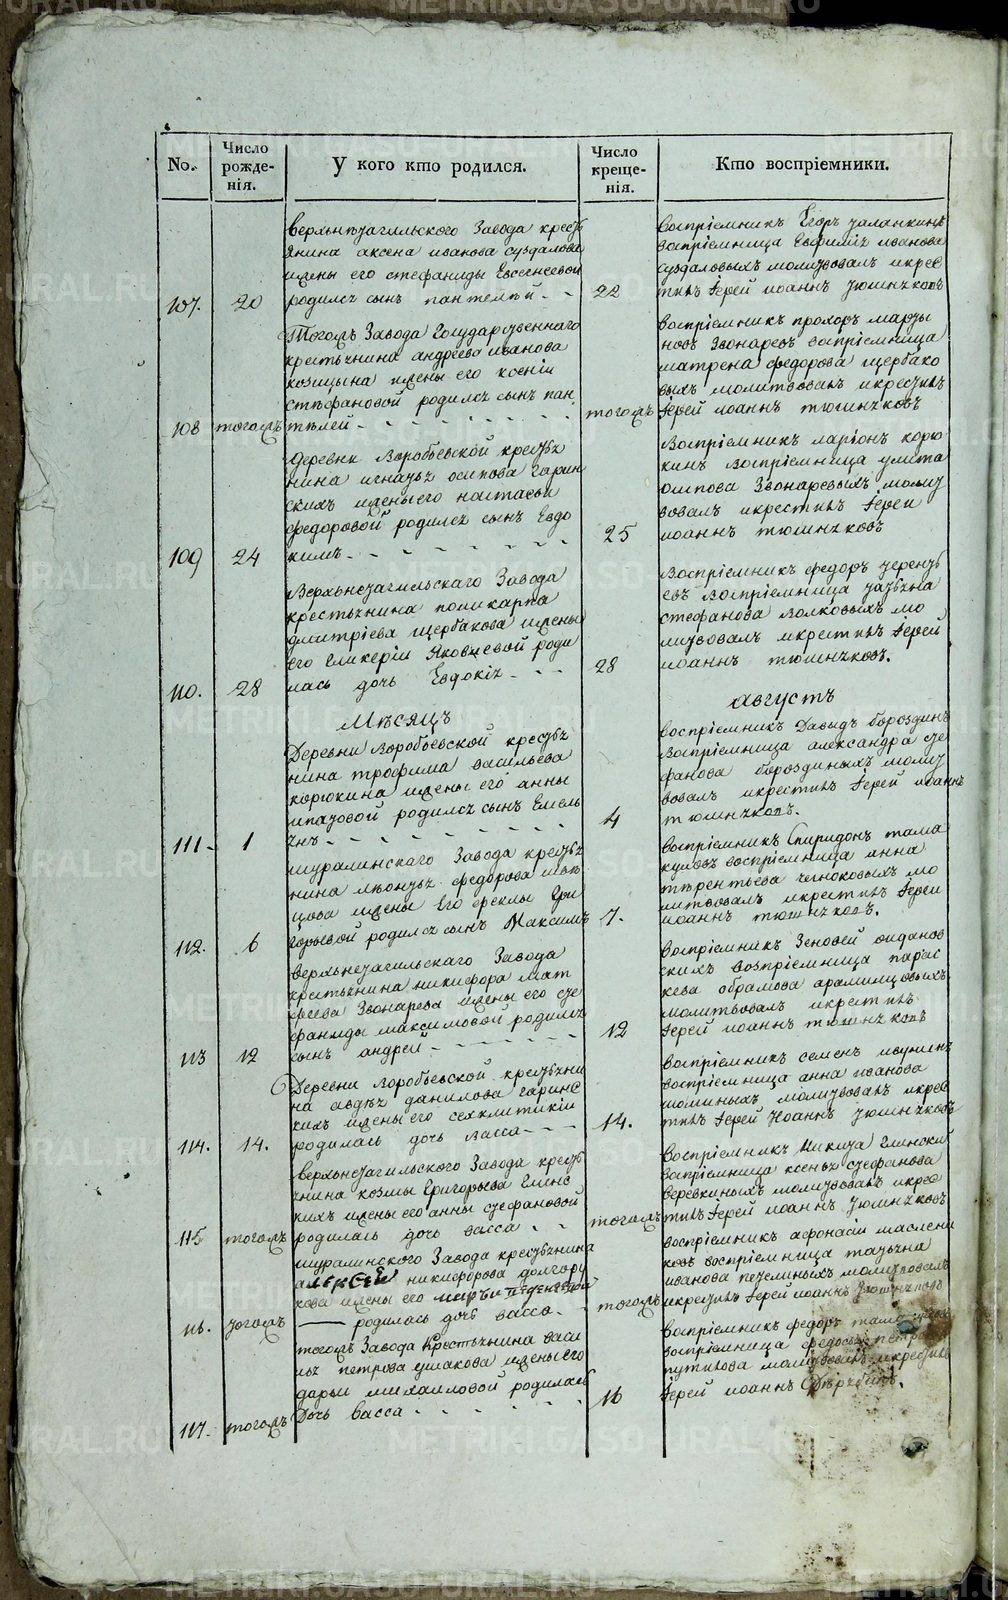 No.
Число рожде-
нія.
У кого кто родился.
Число креще-
нія.
Кто воспріемники.
верхьнетагильского Завода кресть
янина аксена иванова суздалова
жены его стефаниды Евсеневой
107. 20 родилсѧ сынъ пантелѣй
22
воспріемникъ Егоръ
воспріемница Евфимиѧ иванова
суздаловыхъ молитвовалъ икрес
тилъ Іерей иоаннъ тюшнѧковъ
Тогожъ Завода Государственнаго
крестьѧнина андреѧ иванова
козицына жены его ксеніи
стѣфановой родилсѧ сынъ пан
108 тогожъ тѣлей
тогожъ
воспріемникъ прохоръ марты
новъ Звонаревъ воспріемница
матрена федорова щербако
выхъ молитвовалъ икрестилъ
Іерей иоаннъ тюшнѧковъ
деревни воробьевской кресть
нина игнатьѧ осипова гарин
скихъ жены его настасьи
федоровой родилсѧ сынъ Евдо
109 24 кимъ
25
воспріемникъ ларіонъ корю
кинъ воспріемница улита
осипова Звонаревыхъ молит
вовалъ икрестилъ Іереи
иоаннъ тюшнѧковъ
Верхьнетагильскаго Завода
крестьѧнина поликарпа
дмитріева щербакова жены
его гликеріи Яковлевой роди
110. 28 лась дочь Евдокіѧ
28
воспріемникъ федоръ терентѣ
евъ воспріемница татьѧна
стефанова волковыхъ мо
литвовалъ икрестилъ Іерей
иоаннъ тюшнѧковъ.
Мѣсяцъ
августъ
Деревни воробьевской крестьѧ
нина трофима васильева
корюкина жены его анны
ипатовой родилсѧ сынъ Емель
111 1 ѧнъ
4
воспріемникъ Давыдъ бороздинъ
воспріемница александра сте
фанова бороздиныхъ молит
вовалъ икрестилъ Іерей иоаннъ
тюшнѧковъ.
шуралинскаго Завода крестьѧ
нина леонтьѧ федорова шве
цова жены Его феклы Гри
112. 6 горьевой родилсѧ сынъ Максимъ
7.
воспріемникъ Спиридонъ тама
куловъ воспріемница анна
терентьева молитвовалъ икрестилъ Іереи
иоаннъ тюшнѧковъ.
верхьнетагильскаго Завода
крестьѧнина никифора мат
веева Звонарева жены его сте
фаниды максимовой родилсѧ
113 12 сынъ андрей
12
воспріемникъ Зеновей
скихъ воспріемница парас
кева обрамова арамилцовыхъ
молитвовалъ икрестилъ
Іерей иоаннъ тюшнѧковъ
Деревни воробьевской крестьѧни
на авдѣѧ данилова гаринс
кихъ жены его сенклитикіи
114. 14. родилась дочь васса
14.
воспріемникъ семенъ
воспріемница анна иванова
молитвовалъ икрес
тилъ Іерей Иоаннъ тюшнѧковъ
верхьнетагильского Завода кресть
ѧнина козмы Григорьева Глинс
кихъ жены его анны стефановой
115 тогожъ родилась дочь васса
тогожъ
воспріемникъ Никита Глинский
воспріемница ксеньѧ стефанова
веревкиныхъ молитвовалъ икрес
тилъ Іерей иоаннъ тюшнѧковъ
шуралинского Завода крестьѧнина
алексеѧ никифорова долгору
кова жены его
116. тогожъ родилась дочь васса
тогожъ
воспріемникъ афонасіи маслени
ковъ воспріемница татьѧна
иванова молитвовалъ
икрестилъ Іерей иоаннъ тюшнѧковъ
тогожъ Завода Крестьѧнина васи
льѧ петрова ушакова жены его
дарьи михаиловой родилась
117. тогожъ Дочь васса
16
воспріемникъ федоръ
воспріемница федосьѧ петрова
путилова молитвовалъ икрестилъ
Іерей иоаннъ
METRIKI.GASO-URAL.RU